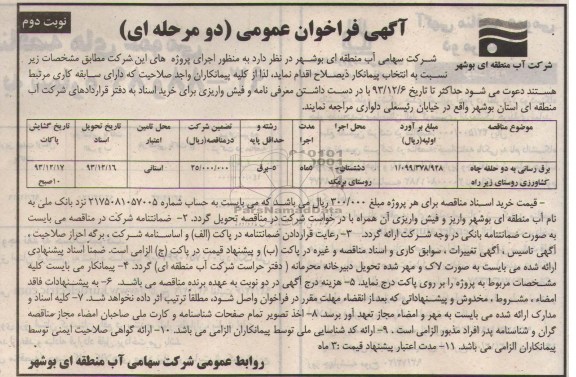 نوبت دوم
آگهی فراخوان عمومی (دو مرحله ای)
شرکت آب منطقه ای بوشهر
شرکت سهامی آب منطقه ای بوشهر در نظر دارد به منظور اجرای پروژه های این شرکت مطابق مشخصات زیر
نسبت به انتخاب پیمانکار ذیصلاح اقدام نماید، لذا از کلیه پیمانکاران واجد صلاحیت که دارای سابقه کاری مرتبط
هستند دعوت می شود حداکثر تا تاریخ ۹۳/۱۲/۶ با در دست داشتن معرفی نامه و فیش واریزی برای خرید اسناد به دفتر قراردادهای شرکت آب
منطقه ای استان بوشهر واقع در خیابان رئیسعلی دلواری مراجعه نمایند.
موضوع مناقصه | مبلغ بر آورد اولیه(ریال) | محل اجرا | مدت اجرا | رشته و حداقل پایه | تضمین شرکت درمناقصه(ریال) | محل تامین اعتبار | تاریخ تحویل اسناد | تاریخ گشایش پاکات
برق رسانی به دو حلقه چاه کشاورزی روستای زیر راه | ۱/۰۹۹/۳۷۸/۹۲۸ | دشتستان- روستای بزیک | ۵ماه | ۵-برق | ۲۵/۰۰۰/۰۰۰ | استانی | ۹۳/۱۲/۱۶ | ۹۳/۱۲/۱۷ ۱۰صبح
- قیمت خرید اسناد مناقصه برای هر پروژه مبلغ ۳۰۰/۰۰۰ ریال می باشد که می بایست به حساب شماره ۲۱۷۵۰۸۱۰۵۷۰۰۵ نزد بانک ملی به
نام آب منطقه ای بوشهر واریز و فیش واریزی آن همراه با درخواست شرکت در مناقصه تحویل گردد. ۲- ضمانتنامه شرکت در مناقصه می بایست
به صورت ضمانتنامه بانکی در وجه شرکت ارائه گردد. ۳- رعایت قراردادن ضمانتنامه در پاکت (الف) و اساسنامه شرکت ، برگه احراز صلاحیت ،
آگهی تاسیس ، آگهی تغییرات ، سوابق کاری و اسناد مناقصه و غیره در پاکت (ب) و پیشنهاد قیمت در پاکت (ج) الزامی است. ضمناً اسناد پیشنهادی
ارائه شده می بایست به صورت لاک و مهر شده تحویل دبیرخانه محرمانه ( دفتر حراست شرکت آب منطقه ای) گردد. ۴- پیمانکار می بایست کلیه
مشخصات مربوط به پروژه را بر روی پاکت درج نماید. ۵- هزینه درج آگهی در دو نوبت به عهده برنده مناقصه می باشد. ۶- به پیشنهادات فاقد
امضاء ، مشروط ، مخدوش و پیشنهاداتی که بعد از انقضاء مهلت مقرر در فراخوان واصل شود، مطلقاً ترتیب اثر داده نخواهد شد. ۷- کلیه اسناد و
مدارک ارائه شده می بایست به مهر و امضاء مجاز تعهد آور برسد. ۸- اخذ تصویر تمام صفحات شناسنامه و کارت ملی صاحبان امضاء مجاز مناقصه
گران و شناسنامه پدر افراد مذبور الزامی است . ۹- ارائه کد شناسایی ملی توسط پیمانکاران الزامی می باشد. ۱۰- ارائه گواهی صلاحیت ایمنی توسط
پیمانکاران الزامی می باشد. ۱۱- مدت اعتبار پیشنهاد قیمت :۳ ماه
روابط عمومی شرکت سهامی آب منطقه ای بوشهر